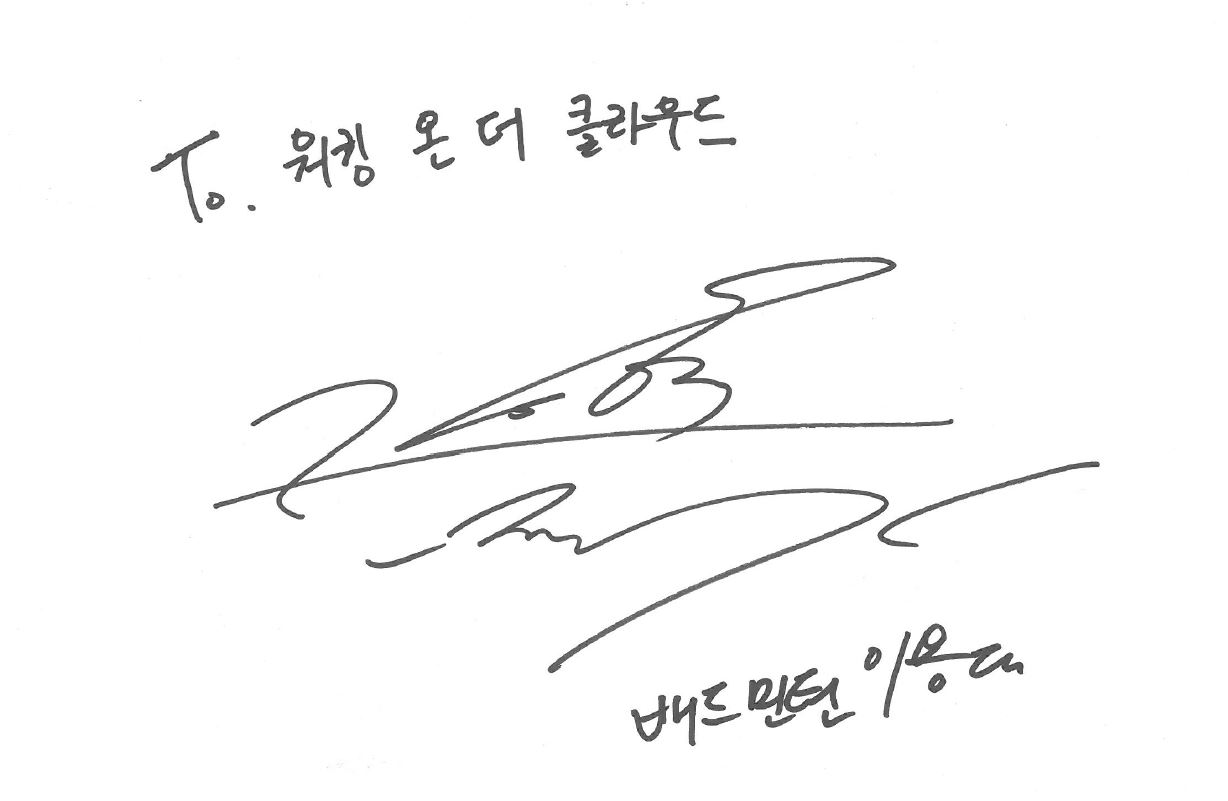 To. 워킹 온 더 클라우드
배드민턴 이용대